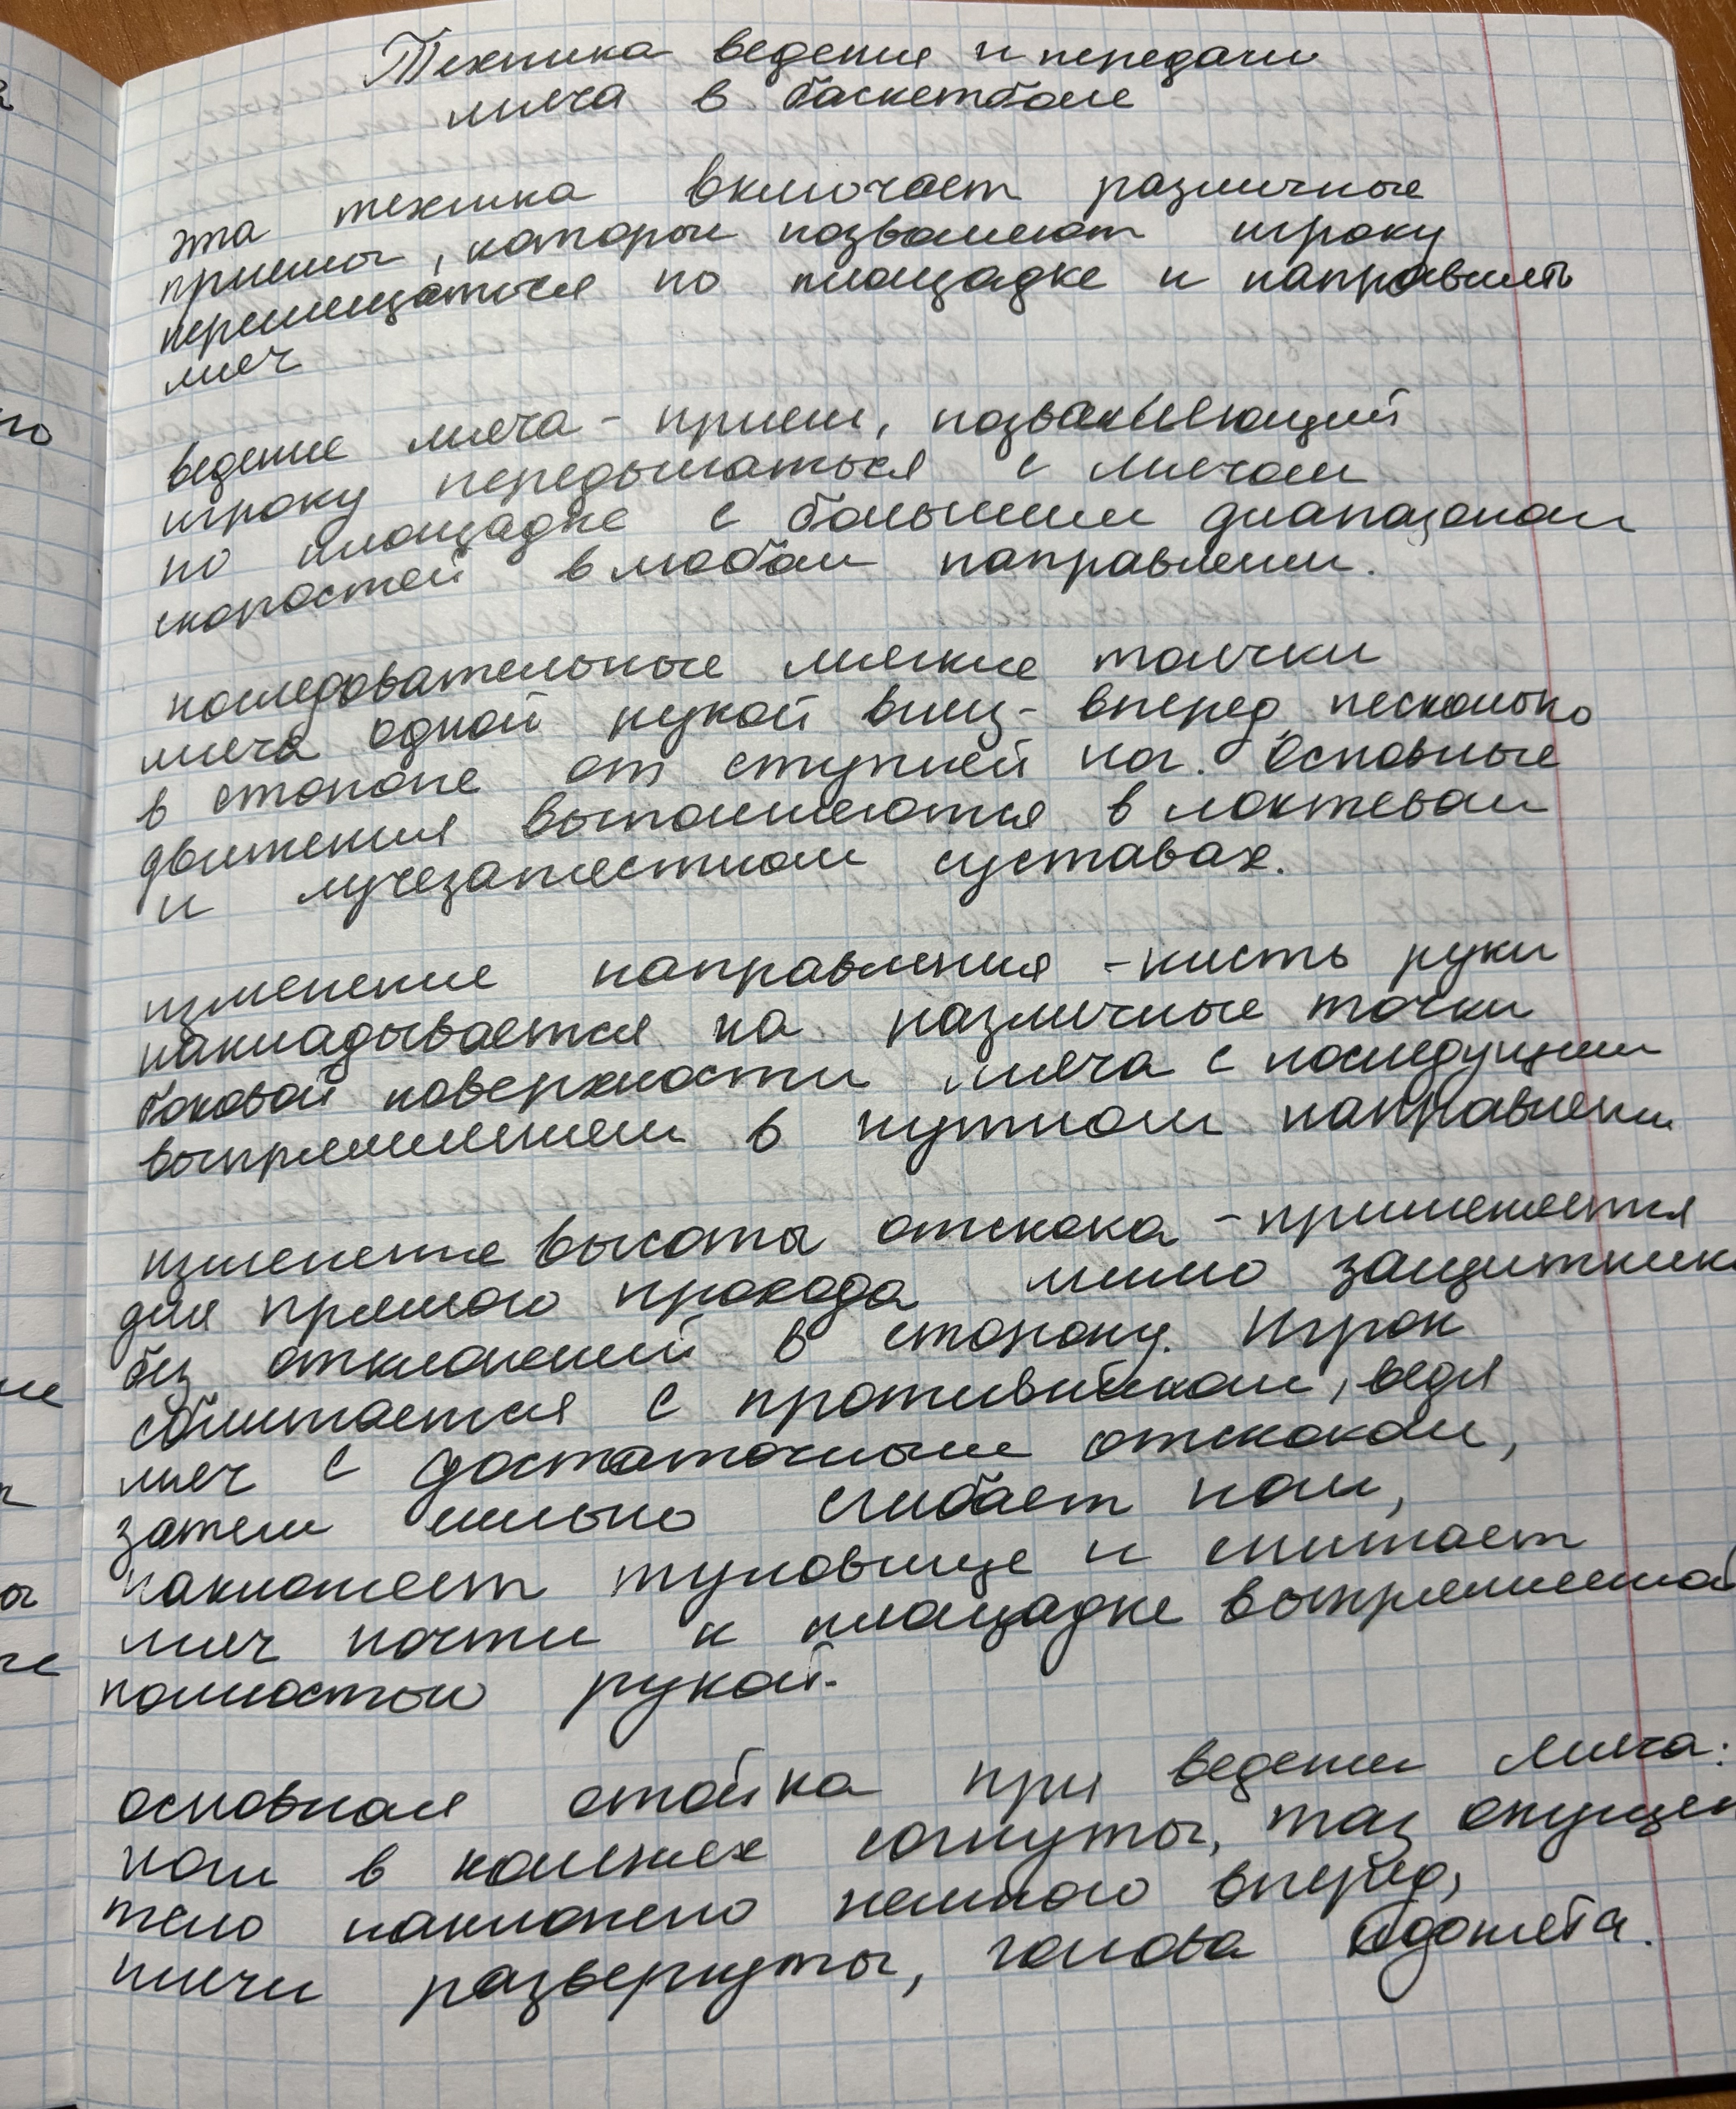 Техника ведения и передачи
мяча в баскетболе
эта техника включает различные
приемы, которые позволяют игроку
перемещаться по площадке и направлять
мяч
ведение мяча - прием, позволяющий
игроку передвигаться с мячом
по площадке с большим диапазоном
скоростей в любом направлении.
последовательные мягкие толчки
мяча одной рукой вниз - вперед, несколько
в стороне от ступней ног. Основные
движения выполняются в локтевом
и лучезапястном суставах.
изменение направления - кисть руки
накладывается на различные точки
боковой поверхности мяча с последующим
выпрямлением в нужном направлении
изменение высоты отскока - применяется
для прямого прохода мимо защитника
без отклонений в сторону. Игрок
сближается с противником, ведя
мяч с достаточным отскоком,
затем сильно сгибает ноги,
наклоняет туловище и снижает
мяч почти к площадке выпрямленной
полностью рукой.
основная стойка при ведении мяча:
ноги в коленях согнуты, таз опущен
тело наклонено немного вперед,
плечи развернуты, голова поднята.